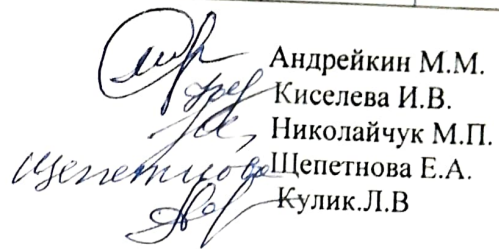 Андрейкин М.М.
Киселева И.В.
Николайчук М.П.
Щепетнова Щепетнова Е.А.
Кулик.Л.В